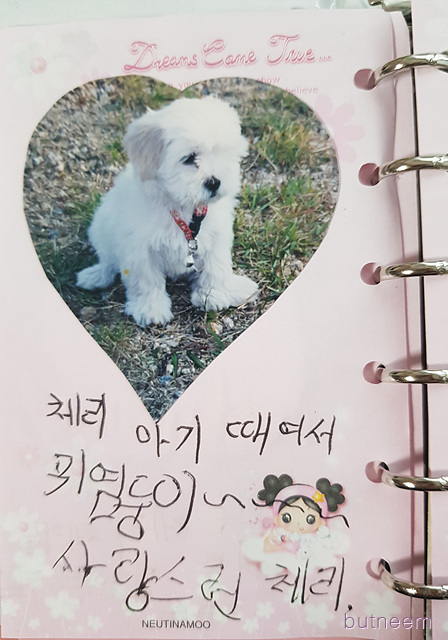 Dreams Come True...
you show
believe
체리 아기 때여서
귀염둥이~~
사랑스런 체리.
NEUTINAMOO
butneem